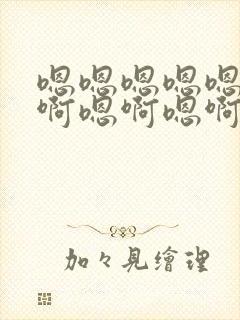 嗯嗯嗯嗯嗯
啊嗯啊嗯啊
加々見繪理